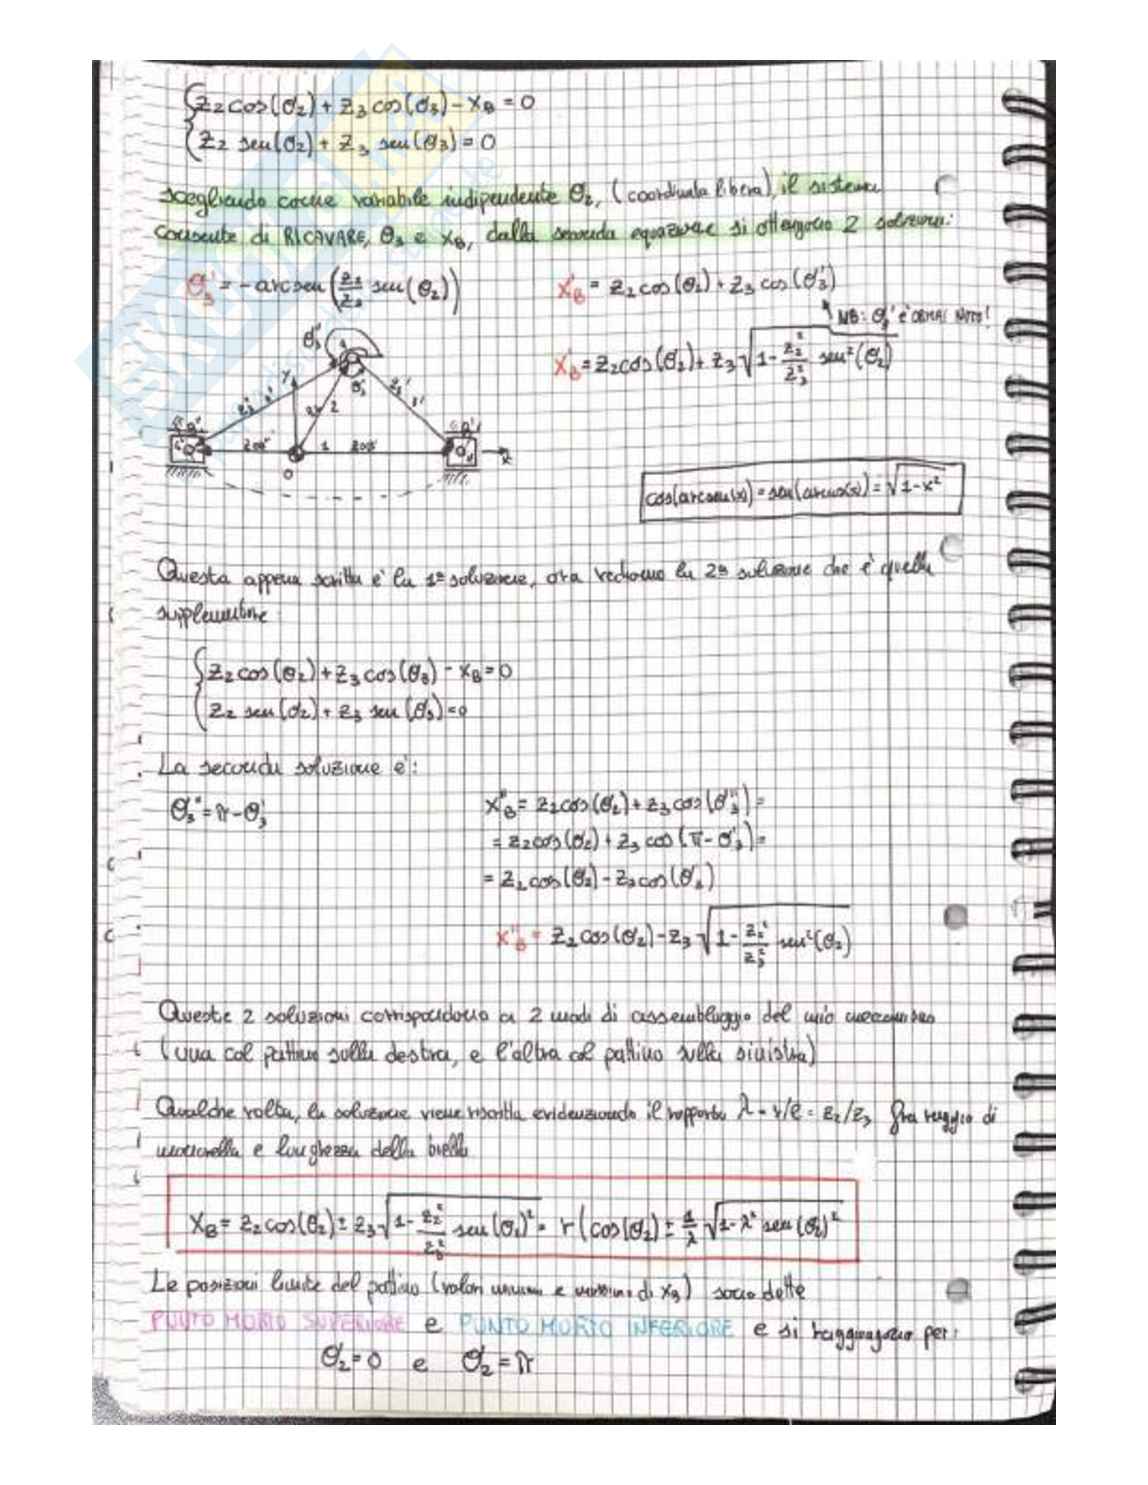 z₂ cos(θ₂) + z₃ cos(θ₃) - x_B = 0
z₂ sen(θ₂) + z₃ sen(θ₃) = 0
scegliendo come variabile indipendente θ₂, (coordinata libera), il sistema
consente di RICAVARE, θ₃ e x_B, dalla seconda equazione si ottengono 2 soluzioni:
θ₃' = - arcsen(z₂/z₃ sen(θ₂))
x_B' = z₂ cos(θ₂) + z₃ cos(θ₃')
NB: θ₃' è ORMAI NOTO!
x_B' = z₂cos(θ₂) + z₃ √(1 - z₂²/z₃² sen²(θ₂))
θ₃''
y
2
1
O
x
cos(arcsen(x)) = sen(arcos(x)) = √(1-x²)
Questa appena scritta è la 1ª soluzione, ora vediamo la 2ª soluzione che è quella
supplementare
z₂ cos(θ₂) + z₃ cos(θ₃) - x_B = 0
z₂ sen(θ₂) + z₃ sen(θ₃) = 0
La seconda soluzione è:
θ₃'' = π - θ₃'
x_B'' = z₂cos(θ₂) + z₃ cos(θ₃'') =
= z₂cos(θ₂) + z₃ cos(π - θ₃') =
= z₂ cos(θ₂) - z₃cos(θ₃')
x_B'' = z₂ cos(θ₂) - z₃ √(1 - z₂²/z₃² sen²(θ₂))
Queste 2 soluzioni corrispondono a 2 modi di assemblaggio del mio meccanismo
(una col pattino sulla destra, e l'altra col pattino sulla sinistra)
Qualche volta, la soluzione viene riscritta evidenziando il rapporto λ = r/l = z₂/z₃ fra raggio di
manovella e lunghezza della biella
x_B = z₂ cos(θ₂) ± z₃ √(1 - z₂²/z₃² sen(θ₂)²) = r(cos(θ₂) ± 1/λ √(1-λ² sen(θ₂)²
Le posizioni limite del pattino (valori massimi e minimi di x_B) sono dette
PUNTO MORTO SUPERIORE e PUNTO MORTO INFERIORE e si raggiungono per:
θ₂ = 0 e θ₂ = π